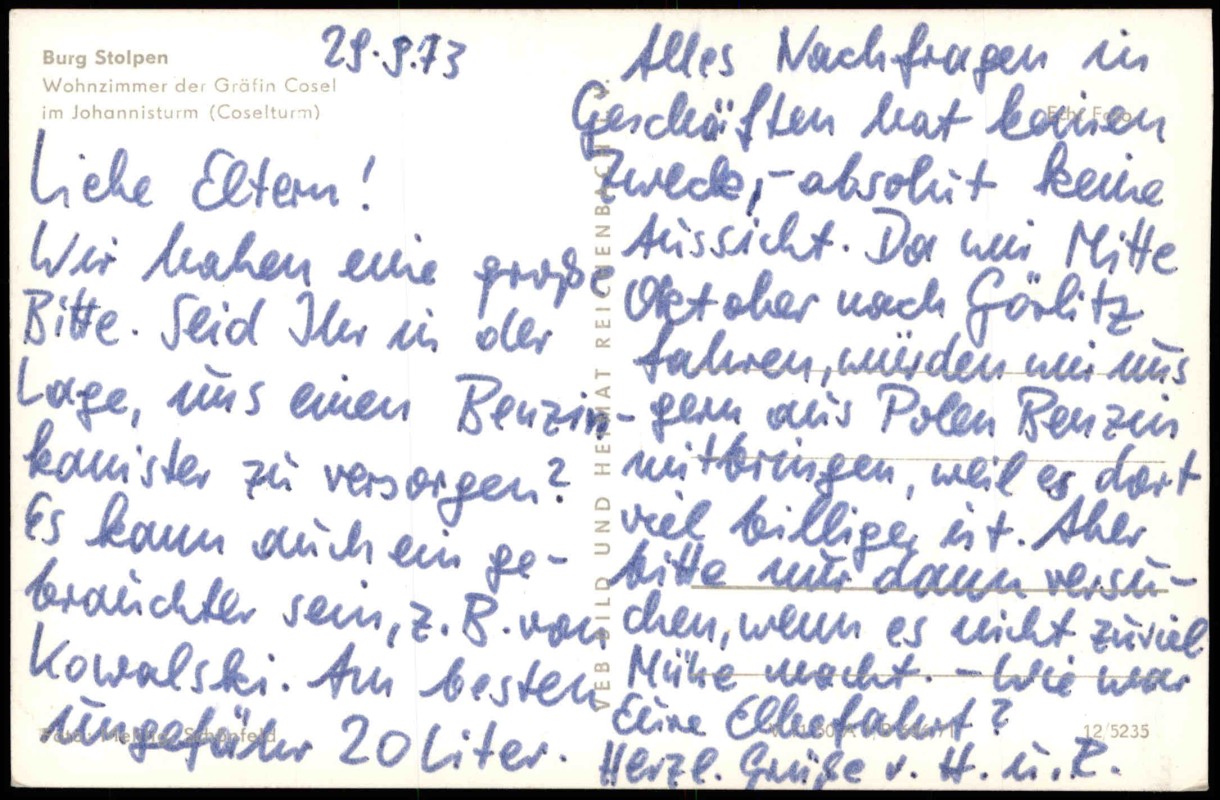 Burg Stolpen
Wohnzimmer der Gräfin Cosel
im Johannisturm (Coselturm)
29.9.73
Liebe Eltern!
Wir haben eine große
Bitte. Seid Ihr in der
Lage, uns einen Benzin-
kanister zu versorgen?
Es kann auch ein ge-
brauchter sein, z. B. von
Kowalski. Am besten
ungefähr 20 Liter.
Alles Nachfragen in
Geschäften hat keinen
Zweck, - absolut keine
Aussicht. Da wir Mitte
Oktober nach Görlitz
fahren, würden wir uns
gern aus Polen Benzin
mitbringen, weil es dort
viel billiger ist. Aber
bitte nur dann versu-
chen, wenn es nicht zuviel
Mühe macht. - Wie war
Eure Elbefahrt?
Herzl. Grüße v. H. u. R.
VEB BILD UND HEIMAT REICHENBACH I. V.
Echt Foto
Foto: Schönfeld
12/5235